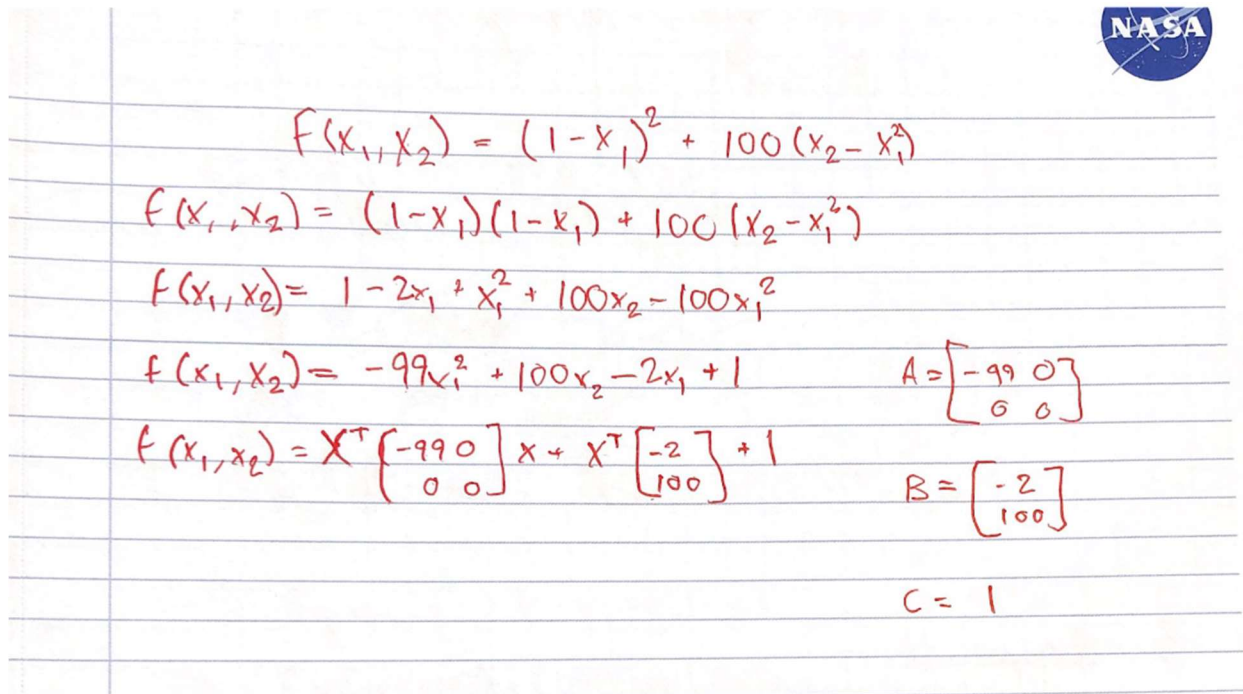 NASA
F(x₁, x₂) = (1-x₁)² + 100(x₂-x₁²)
f(x₁, x₂) = (1-x₁)(1-x₁) + 100(x₂-x₁²)
f(x₁, x₂) = 1 - 2x₁ + x₁² + 100x₂ - 100x₁²
f(x₁, x₂) = -99x₁² + 100x₂ - 2x₁ + 1 A = [-99 0; 0 0]
f(x₁, x₂) = Xᵀ [-99 0; 0 0] x + Xᵀ [-2; 100] + 1
B = [-2; 100]
C = 1